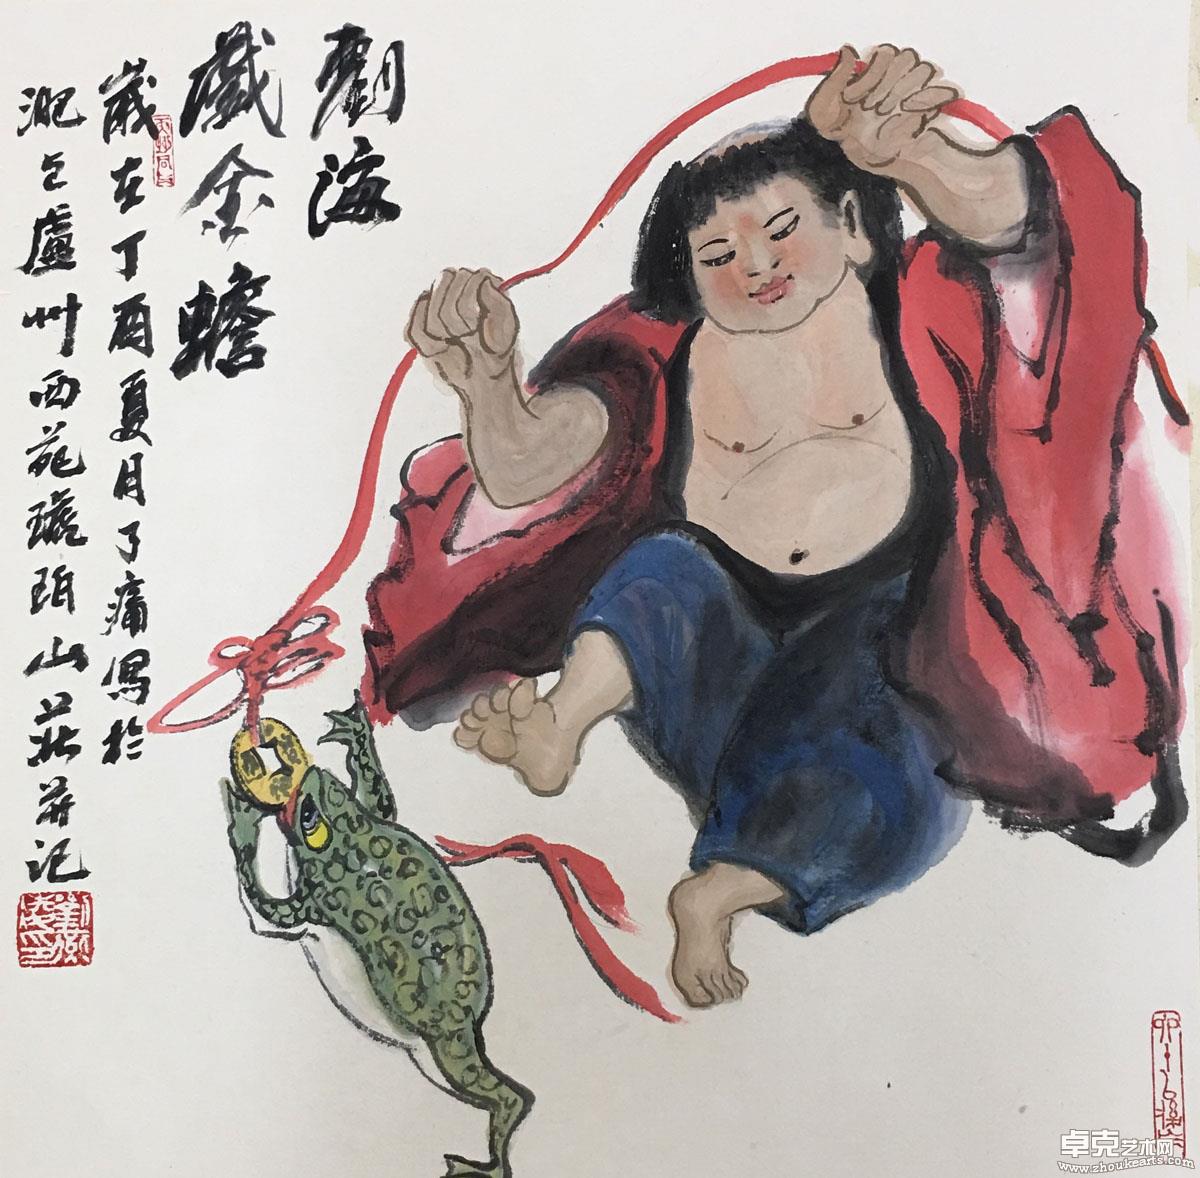 劉海
戲金蟾
歲在丁酉夏月了痛寫於
淝上廬州西苑
山莊并记
卓克艺术网
www.zhoukearts.com